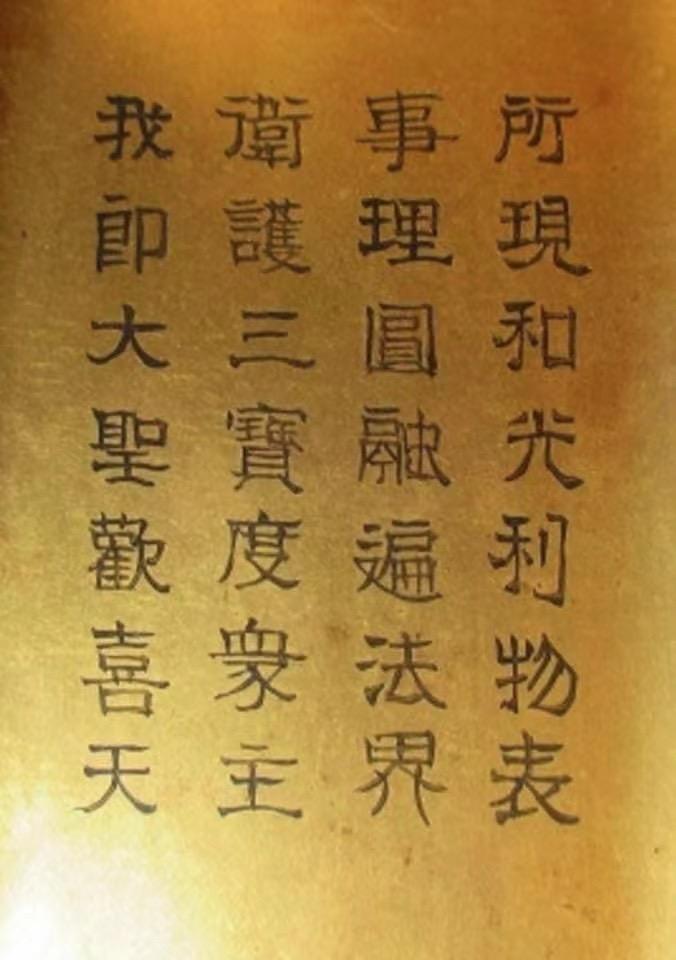 所現和光利物表
事理圓融遍法界
衛護三寶度衆主
我即大聖歡喜天